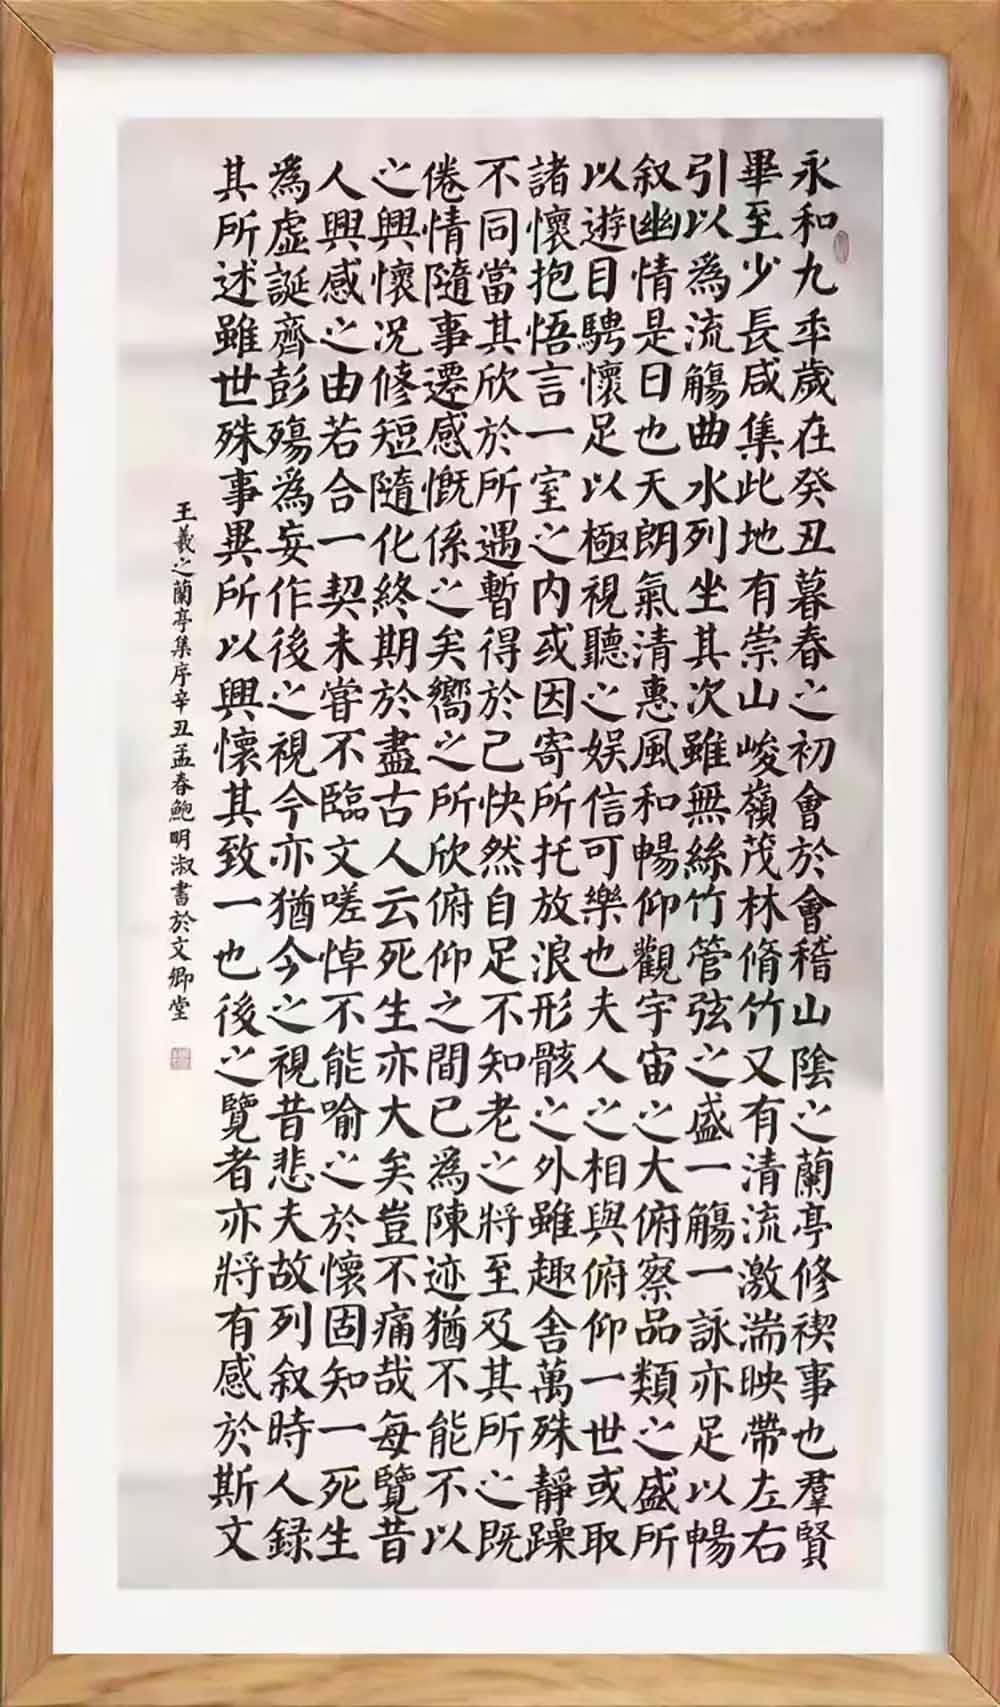 永和九秊歲在癸丑暮春之初會於會稽山陰之蘭亭修禊事也羣賢
畢至少長咸集此地有崇山峻嶺茂林脩竹又有清流激湍映帶左右
引以為流觴曲水列坐其次雖無絲竹管弦之盛一觴一詠亦足以暢
叙幽情是日也天朗氣清惠風和暢仰觀宇宙之大俯察品類之盛所
以遊目騁懷足以極視聽之娱信可樂也夫人之相與俯仰一世或取
諸懷抱悟言一室之内或因寄所托放浪形骸之外雖趣舍萬殊静躁
不同當其欣於所遇暫得於己快然自足不知老之將至及其所之既
倦情隨事遷感慨係之矣嚮之所欣俯仰之間已為陳迹猶不能不以
之興懷况修短隨化終期於盡古人云死生亦大矣豈不痛哉每覽昔
人興感之由若合一契未嘗不臨文嗟悼不能喻之於懷固知一死生
為虚誕齊彭殤為妄作後之視今亦猶今之視昔悲夫故列叙時人録
其所述雖世殊事異所以興懷其致一也後之覽者亦將有感於斯文
王羲之蘭亭集序辛丑孟春鮑明淑書於文卿堂